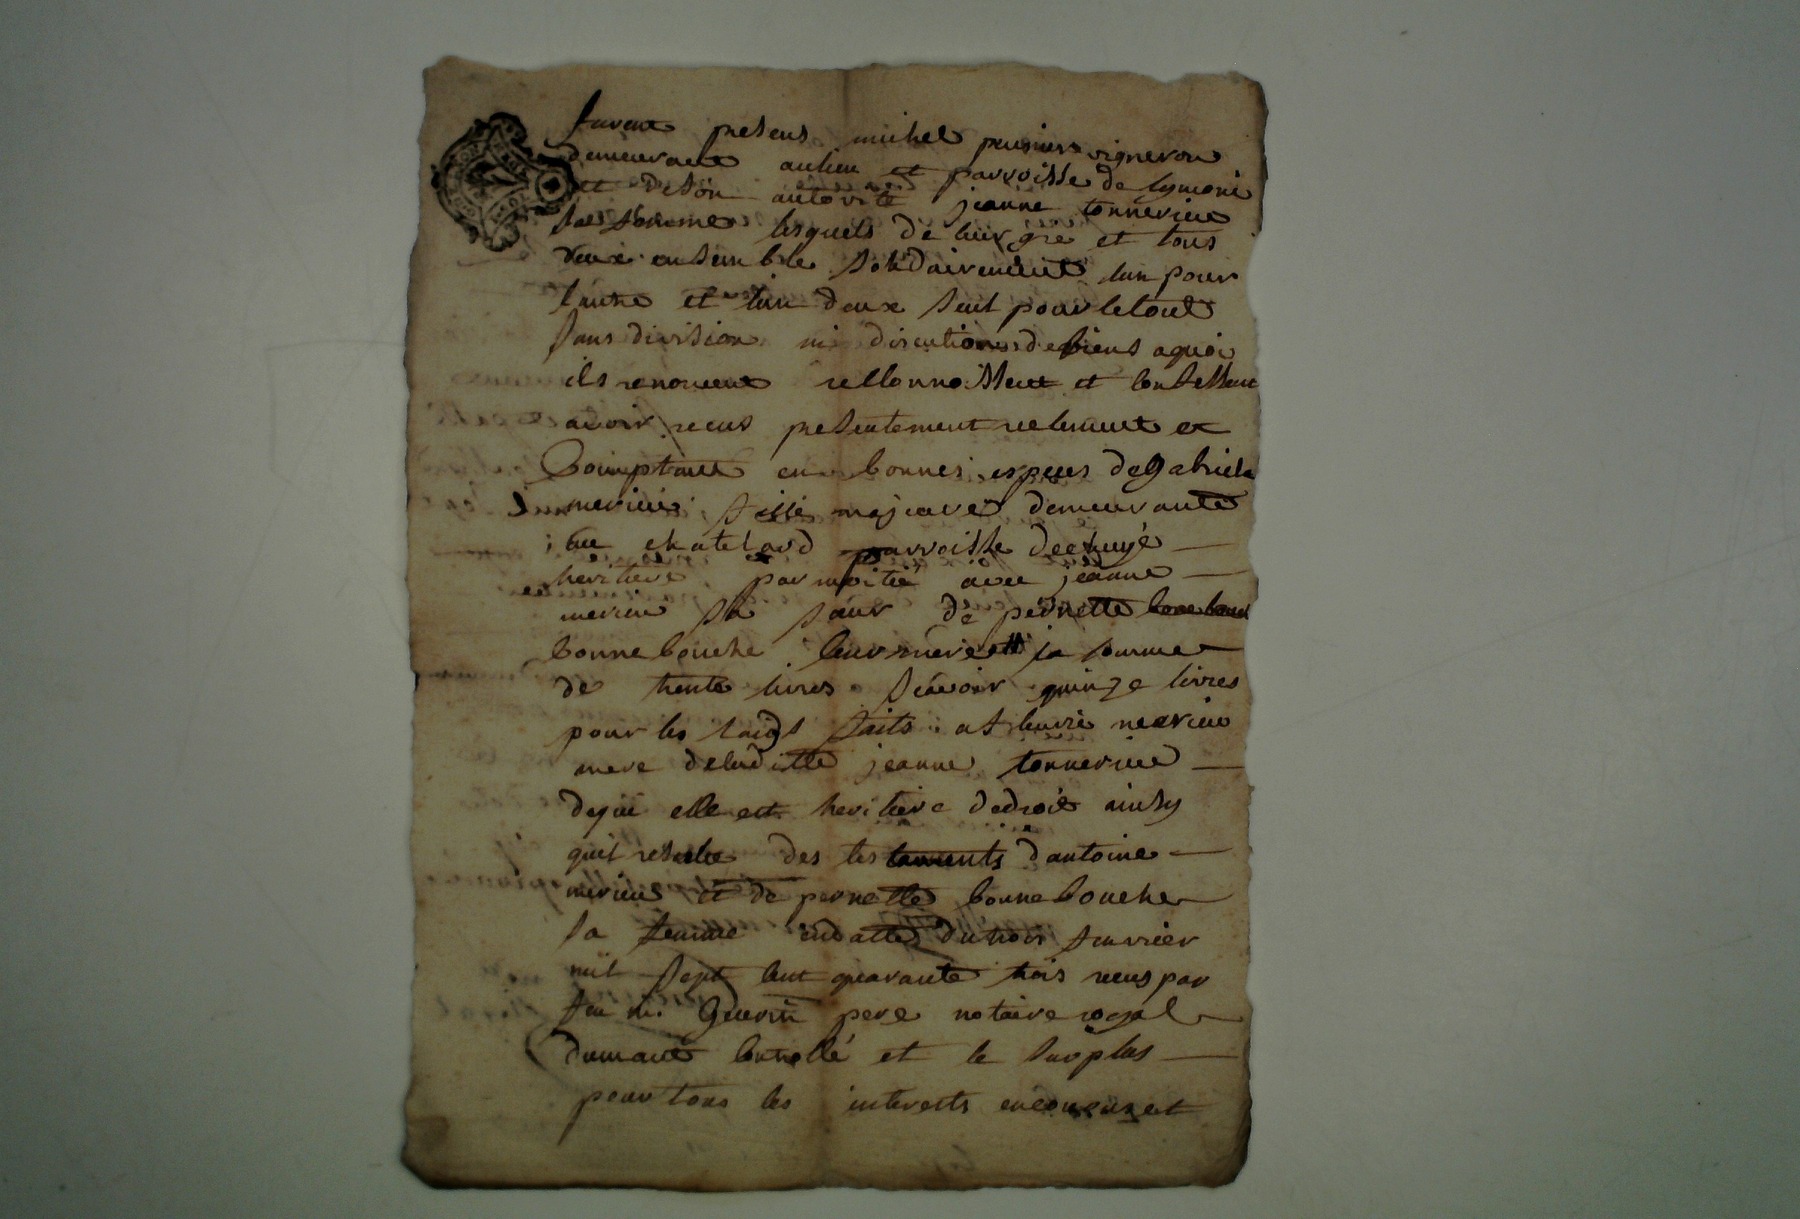 furent presens michel peurier vigneron
demeurant au lieu et parroisse de lymoni
et de son autorité jeanne tonnerieux
sa femme lesquels de leur gré et tous
deux ensemble solidairement lun pour
lautre et lun deux seul pour le tout
sans division ni discution de biens aquoi
ils renoncent reconnoissent et confessent
avoir recus presentement reelement et
Comptant en bonnes especes de Gabriele
merieu fille majeure demeurante
au chatelard parroisse de
heritiere par moitié avec jeanne
merieu sa sœur de pernette
bonnebouche leur mere la somme
de trente livres scavoir quinze livres
pour les faits a merieu
mere de laditte jeanne tonnerieu
de qui elle est heritiere de droit ainsy
quil resulte des testaments dantoine
merieu et de pernette bonnebouche
sa femme en datte du trois fevrier
mil sept cent quarante trois recus par
feu me. Guerin pere notaire royal
dumant controllé et le surplus
pour tous les interests encourus et